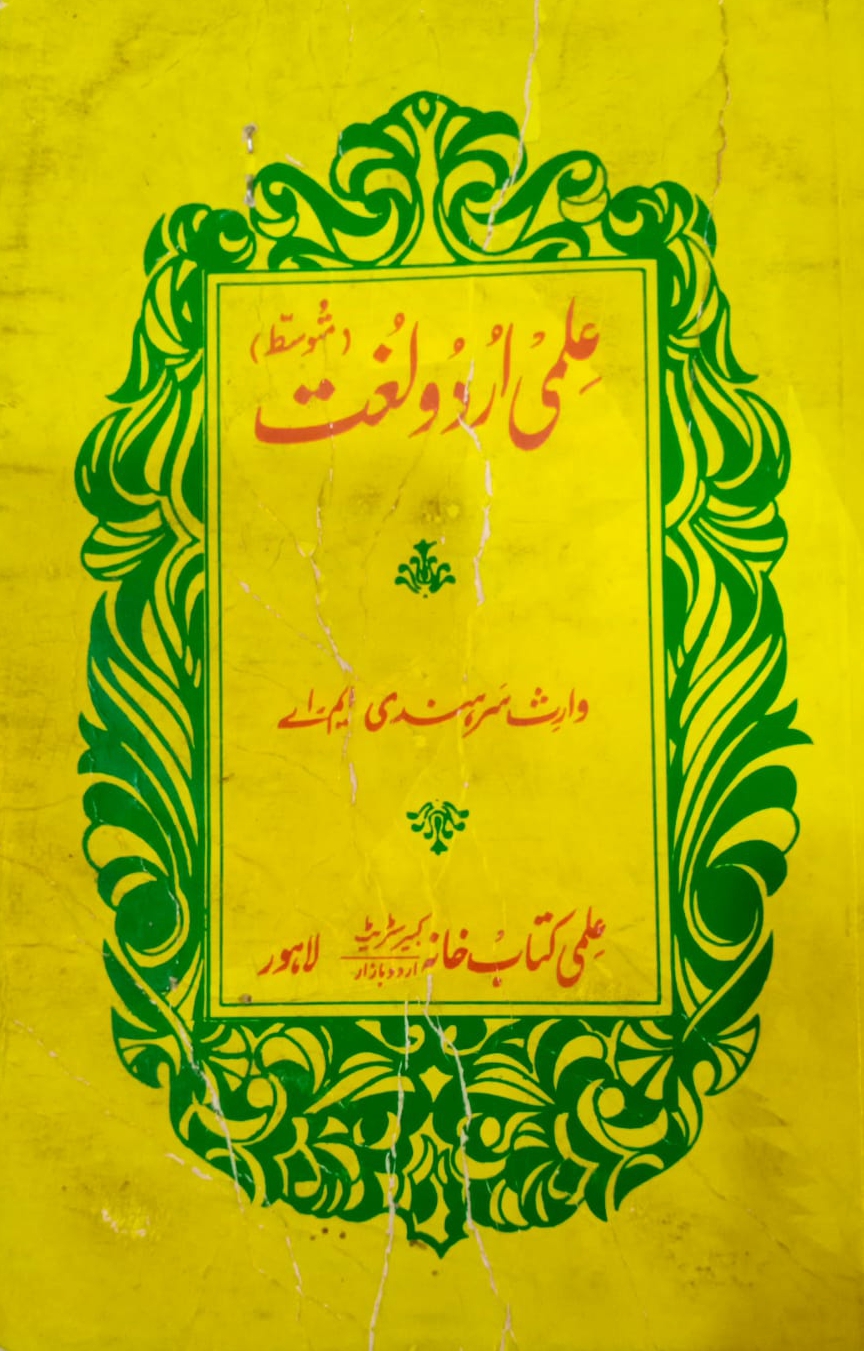 عِلمیْ اُردُو لُغت (متُوسّط)
وارِث سَرہندی ایم۔اے
عِلمی کتابْ خانہ کبیرسٹریٹ اردو بازار لاہور